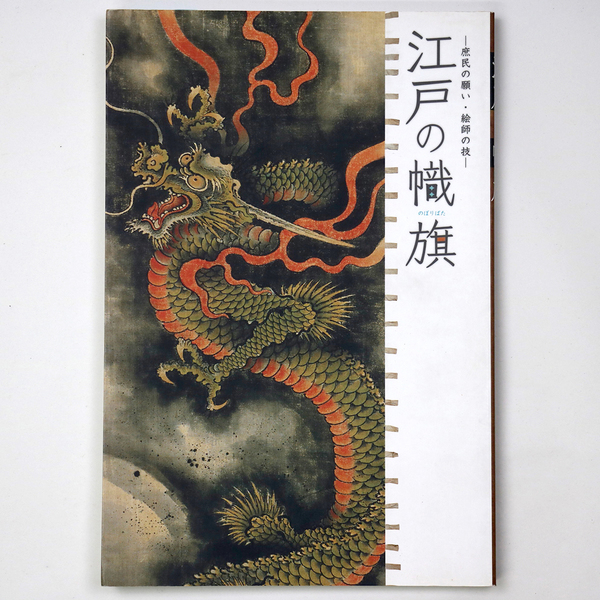 ―庶民の願い・絵師の技―
江戸の幟旗
のぼりばた